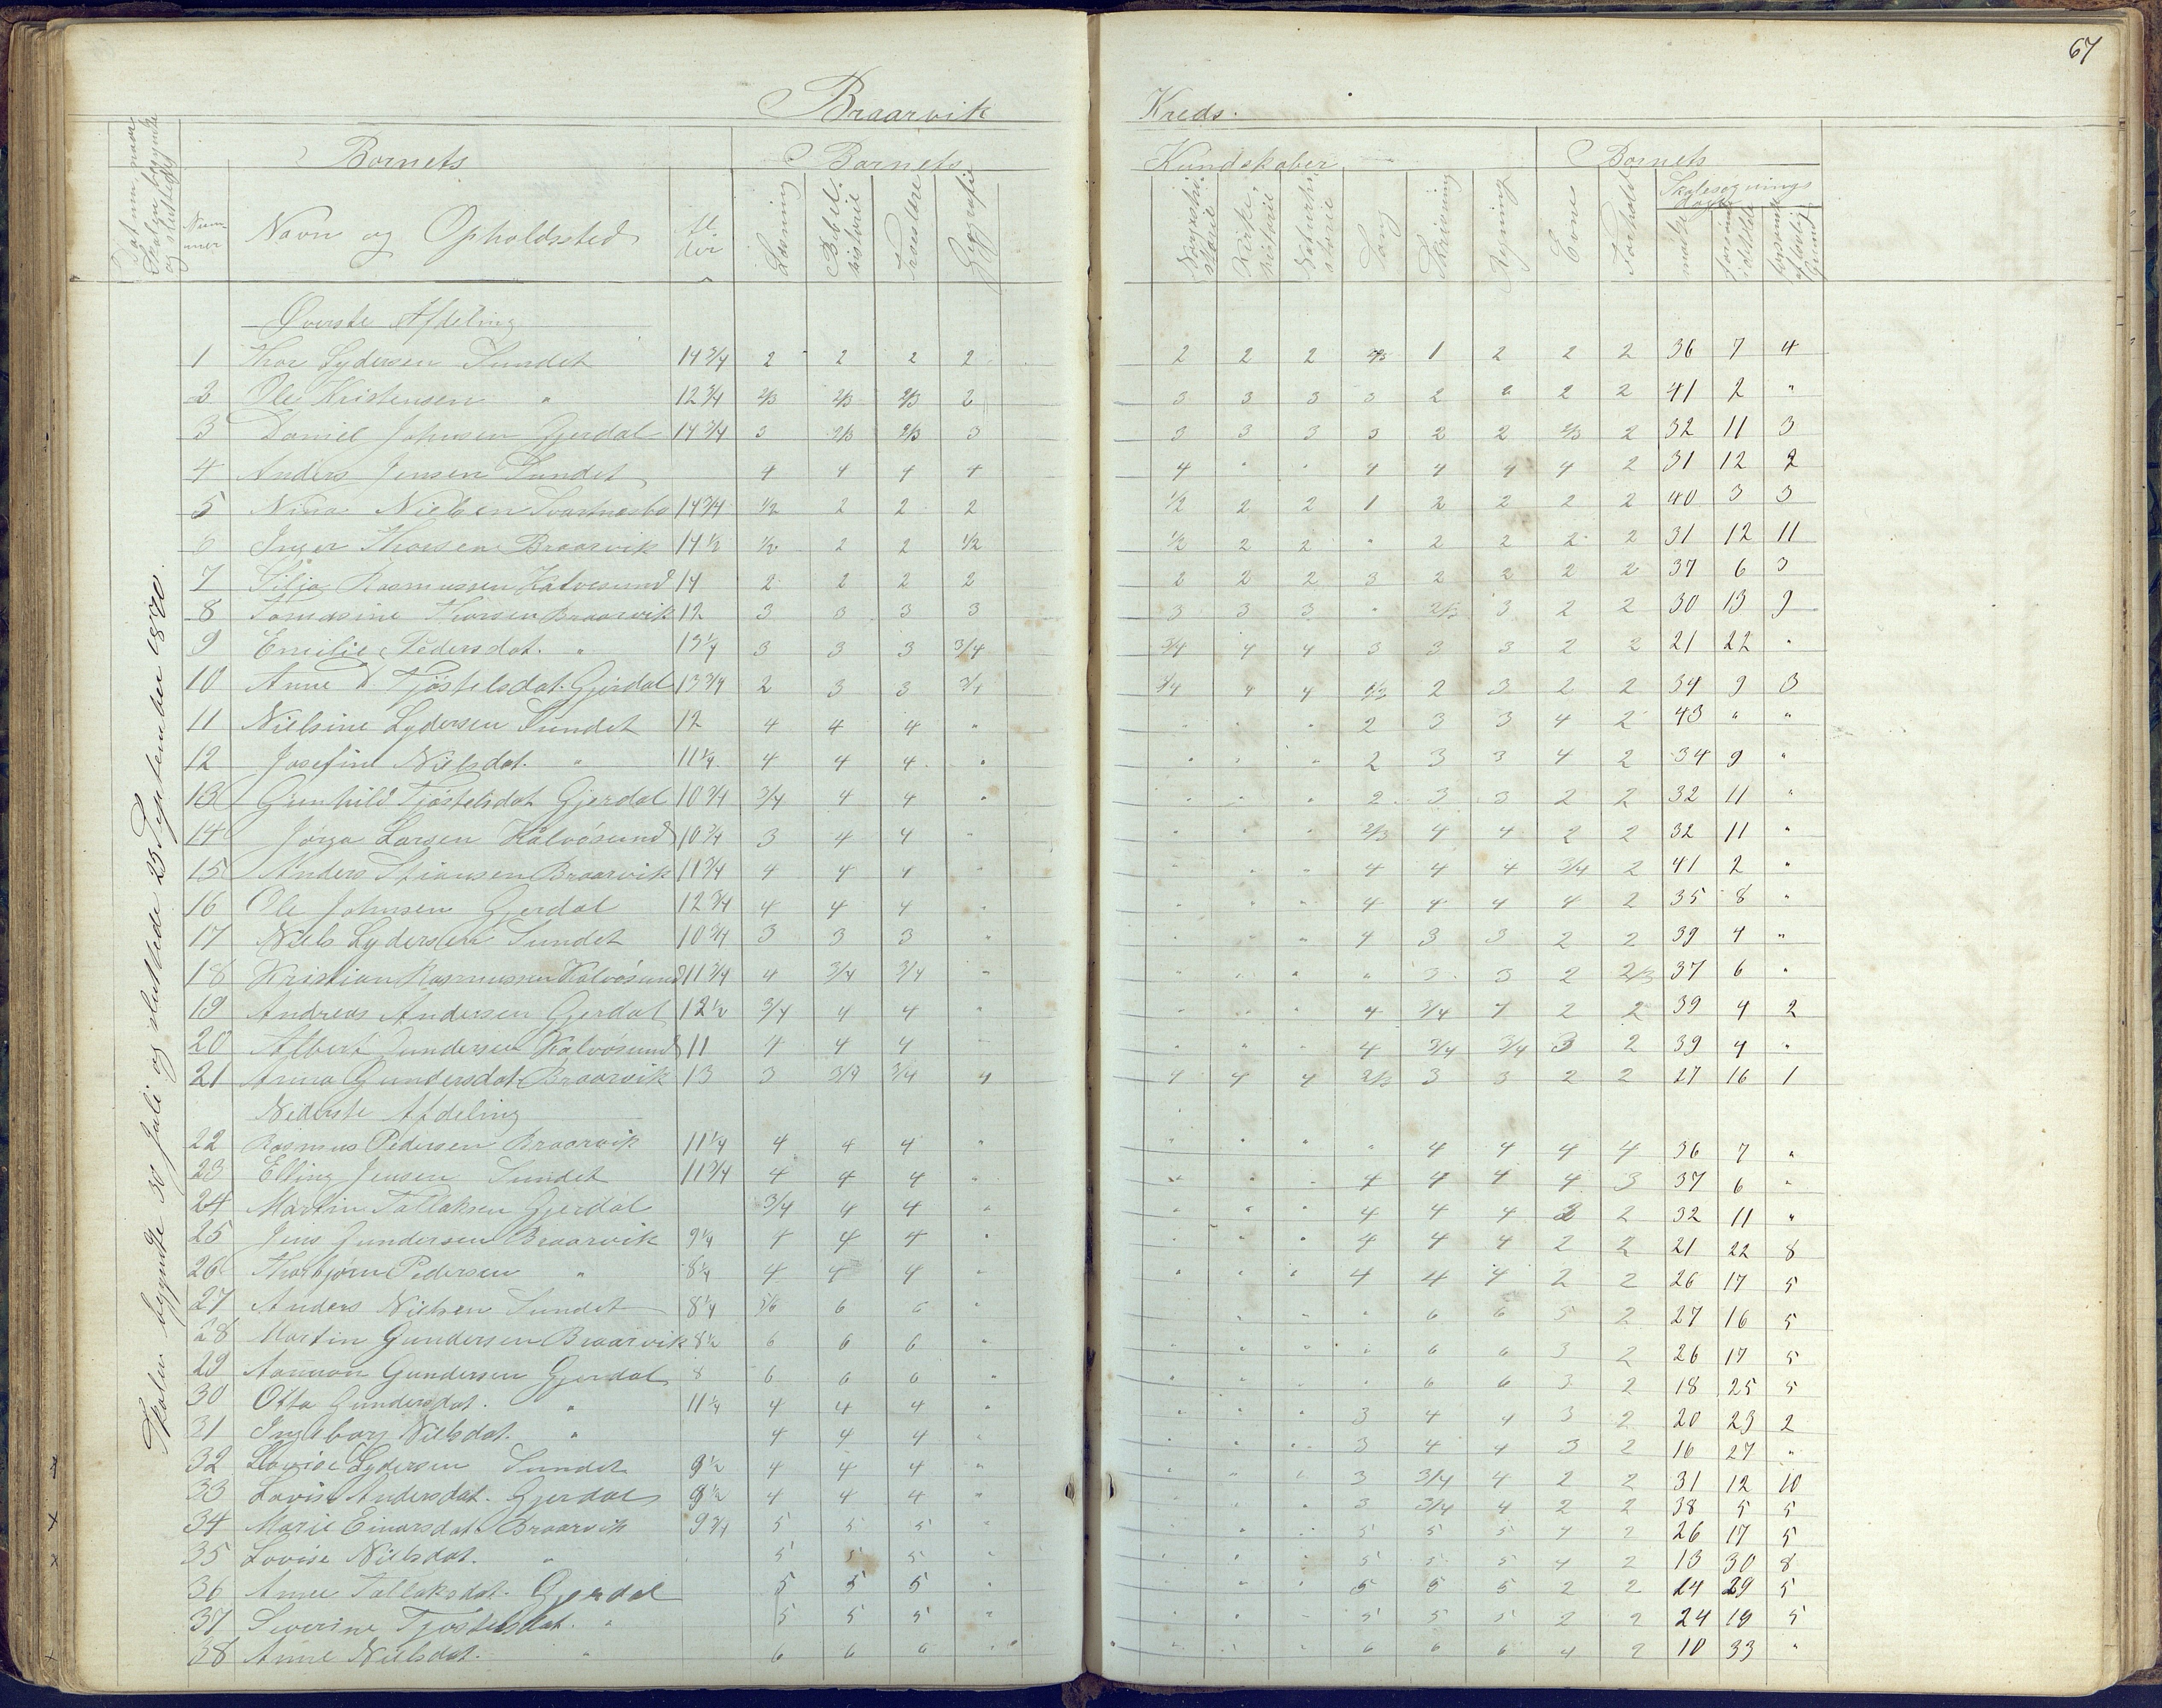 67
Braarvik Kreds.
Datum, naar Skolen begyndte og sluttedes
Barnets
Barnets Kundskaber
Barnets
Num-
mer
Navn og Opholdssted
Al-
der
Læsning
Bibel-
historie
Troeslære
Geografie
Norgeshi-
storie
Kirke-
historie
Naturhi-
storie
Sang
Skrivning
Regning
Evne
Forhold
Skolesøgnings
dage
mødte
forsømte
i det hele
forsømte
af lovlig
Grund
Skolen begyndte 30 Juli og sluttede 23 September 1870.
Øverste Afdeling
1 Thor Lydersen Sundet 14 3/4 2 2 2 2 2 2 2 2/3 1 2 2 2 36 7 4
2 Ole Kristensen " 12 3/4 2/3 2/3 2/3 2 3 3 3 3 2 2 2 2 41 2 "
3 Daniel Johnsen Gjerdal 14 3/4 3 2/3 2/3 3 3 3 3 3 2 2 2/3 2 32 11 3
4 Anders Jensen Sundet 4 4 4 4 4 " " 4 4 4 4 2 31 12 2
5 Nina Nielsen 14 3/4 1/2 2 2 2 1/2 2 2 1 2 2 2 2 40 3 3
6 Inger Thorsen Braarvik 14 1/2 1/2 2 2 1/2 1/2 2 2 " 2 2 2 2 31 12 11
7 Silja Rasmussen Kalvøsund 14 2 2 2 2 2 2 2 3 2 2 2 2 37 6 3
8 Tomasine Thorsen Braarvik 12 3 3 3 3 3 3 3 " 2/3 3 2 2 30 13 9
9 Emilie Pedersdat. " 13 1/4 3 3 3 3/4 3/4 4 4 3 3 3 2 2 21 22 "
10 Anne D. Tjøstelsdat. Gjerdal 13 3/4 2 3 3 3/4 3/4 4 4 2/3 2 3 2 2 34 9 3
11 Nielsine Lydersen Sundet 12 4 4 4 " " " " 2 3 3 4 2 43 " "
12 Josefine Nielsdat. " 11 1/4 4 4 4 " " " " 2 3 3 4 2 34 9 "
13 Gunhild Tjøstelsdat Gjerdal 10 3/4 3/4 4 4 " " " " 2 3 3 2 2 32 11 "
14 Jørga Larsen Kalvøsund 10 3/4 3 4 4 " " " " 2/3 4 4 2 2 32 11 "
15 Anders Stiansen Braarvik 11 3/4 4 4 4 " " " " 4 4 4 3/4 2 41 2 "
16 Ole Johnsen Gjerdal 12 3/4 4 4 4 " " " " 4 4 4 4 2 35 8 "
17 Niels Lydersen Sundet 10 3/4 3 3 3 " " " " 4 3 3 2 2 39 4 "
18 Kristian Rasmussen Kalvøsund 11 3/4 4 3/4 3/4 " " " " " 3 3 2 2/3 37 6 "
19 Andreas Andersen Gjerdal 12 1/2 3/4 4 4 " " " " 4 3/4 4 2 2 39 4 2
20 Albert Gundersen Kalvøsund 11 4 4 4 " " " " 4 3/4 3/4 3 2 39 4 "
21 Anna Gundersdat Braarvik 13 3 3/4 3/4 4 4 4 4 2/3 3 3 2 2 27 16 1
Nederste Afdeling
22 Rasmus Pedersen Braarvik 11 1/4 4 4 4 " " " " " 4 4 4 4 36 7 "
23 Elling Jensen Sundet 11 3/4 4 4 4 " " " " 4 4 4 4 3 37 6 "
24 Martin Tallaksen Gjerdal 3/4 4 4 " " " " 4 4 4 3 2 32 11 "
25 Jens Gundersen Braarvik 9 1/4 4 4 4 " " " " 4 4 4 2 2 21 22 8
26 Thorbjørn Pedersen " 8 1/4 4 4 4 " " " " 4 4 4 2 2 26 17 5
27 Anders Nielsen Sundet 8 1/4 5/6 6 6 " " " " " 6 6 5 2 27 16 5
28 Martin Gundersen Braarvik 8 1/2 6 6 6 " " " " " 6 6 3 2 26 17 5
29 Aanon Gundersen Gjerdal 8 6 6 6 " " " " " 6 6 3 2 18 25 5
30 Otta Gundersdat. " 11 1/4 4 4 4 " " " " 3 4 4 3 2 20 23 2
31 Ingeborg Nielsdat. " 4 4 4 " " " " 3 4 4 3 2 16 27 "
32 Lovise Lydersen Sundet 9 1/2 4 4 4 " " " " 3 3/4 4 2 2 31 12 10
33 Lovise Andersdat. Gjerdal 9 1/2 4 4 4 " " " " 3 3/4 4 2 2 38 5 5
34 Marie Einarsdat. Braarvik 9 3/4 5 5 5 " " " " 5 5 5 4 2 26 17 5
35 Lovise Nielsdat. " 5 5 5 " " " " 5 5 5 4 2 13 30 8
36 Anne Tallaksdat. Gjerdal 5 5 5 " " " " 5 5 5 2 2 14 29 5
37 Severine Tjøstelsdat. " 5 5 5 " " " " 5 5 5 2 2 24 19 5
38 Anne Nielsdat. " 6 6 6 " " " " 6 6 6 4 2 10 33 "